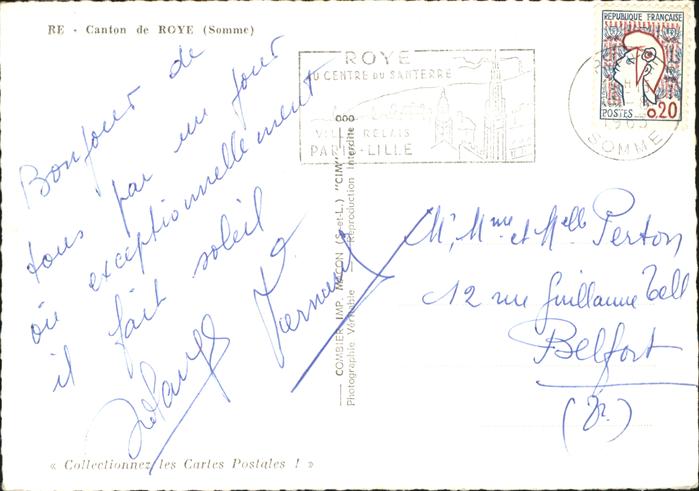 RE - Canton de ROYE (Somme)
Bonjour de
tous par un jour
où exceptionnellement
il fait soleil
Fernand
ROYE
AU CENTRE DU SANTERRE
VILLE RELAIS
PARIS-LILLE
REPUBLIQUE FRANÇAISE
POSTES 0,20
SOMME
COMBIER IMP. MACON (S.-et-L.) "CIM"
Photographie Véritable - Reproduction Interdite
M, Mme et Melle Perton
12 rue Guillaume Tell
Belfort
« Collectionnez les Cartes Postales ! »